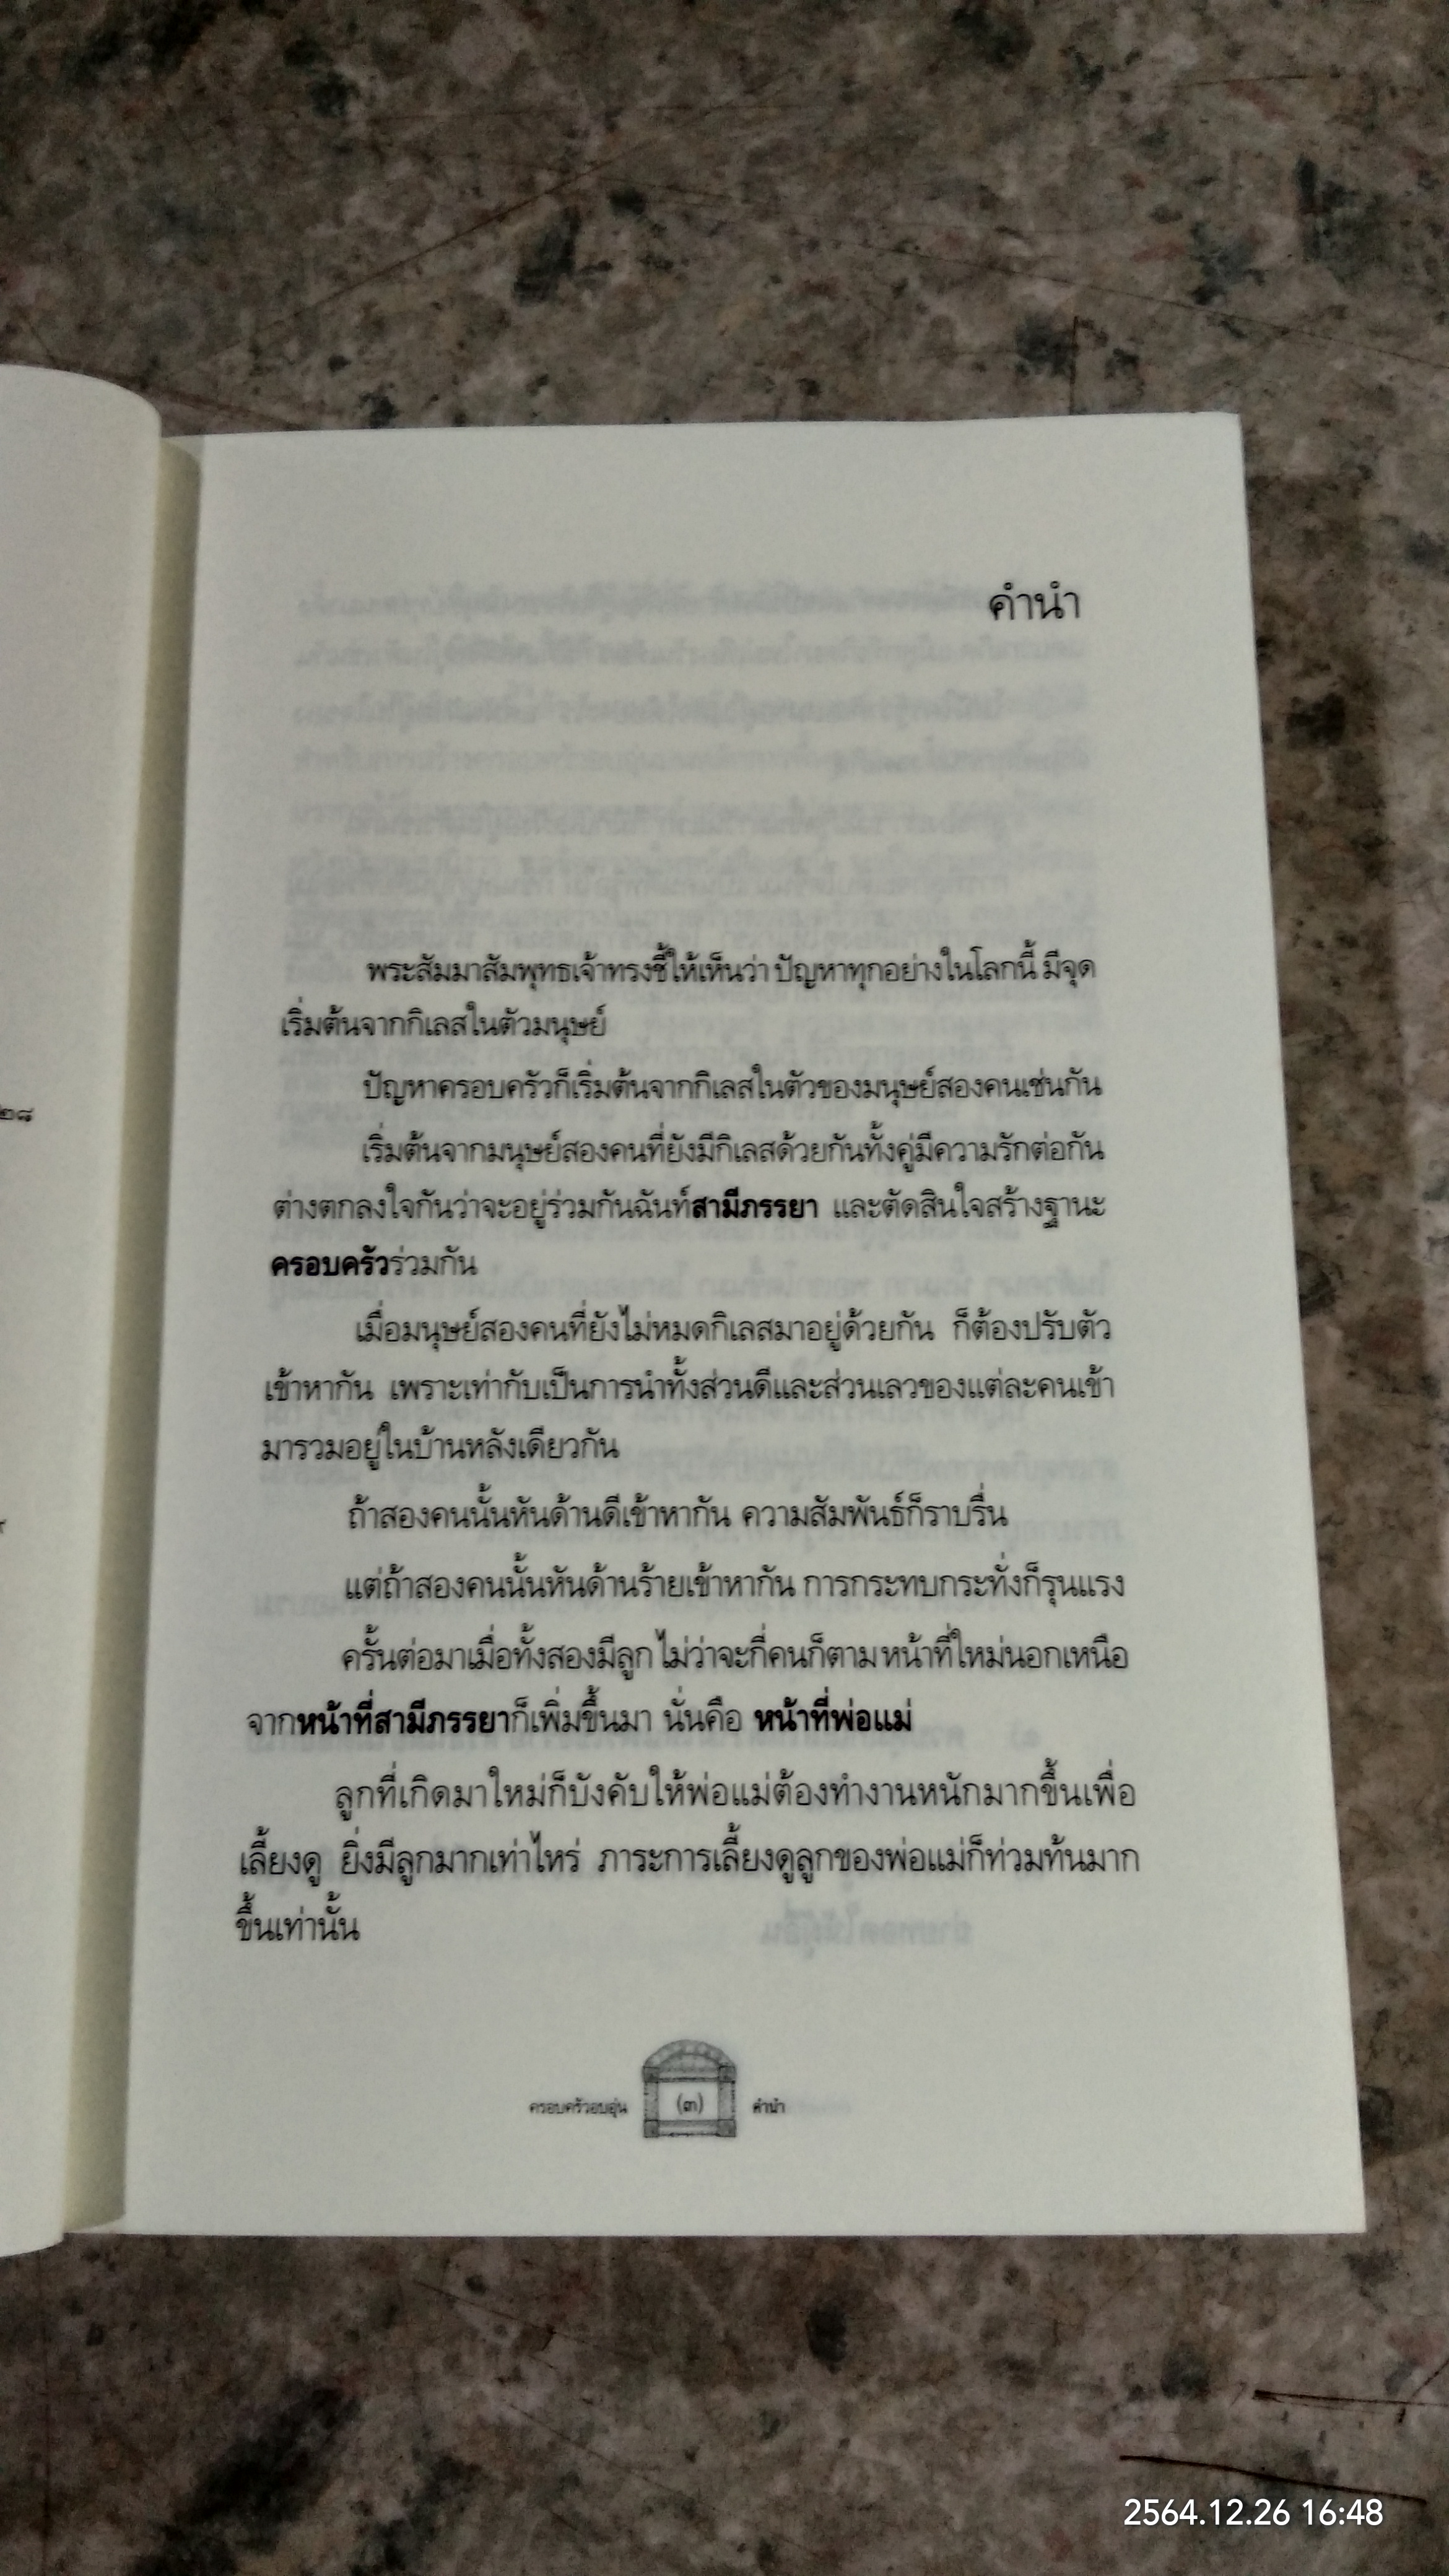 คำนำ
พระสัมมาสัมพุทธเจ้าทรงชี้ให้เห็นว่า ปัญหาทุกอย่างในโลกนี้ มีจุด
เริ่มต้นจากกิเลสในตัวมนุษย์
ปัญหาครอบครัวก็เริ่มต้นจากกิเลสในตัวของมนุษย์สองคนเช่นกัน
เริ่มต้นจากมนุษย์สองคนที่ยังมีกิเลสด้วยกันทั้งคู่มีความรักต่อกัน
ต่างตกลงใจกันว่าจะอยู่ร่วมกันฉันท์สามีภรรยา และตัดสินใจสร้างฐานะ
ครอบครัวร่วมกัน
เมื่อมนุษย์สองคนที่ยังไม่หมดกิเลสมาอยู่ด้วยกัน ก็ต้องปรับตัว
เข้าหากัน เพราะเท่ากับเป็นการนำทั้งส่วนดีและส่วนเลวของแต่ละคนเข้า
มารวมอยู่ในบ้านหลังเดียวกัน
ถ้าสองคนนั้นหันด้านดีเข้าหากัน ความสัมพันธ์ก็ราบรื่น
แต่ถ้าสองคนนั้นหันด้านร้ายเข้าหากัน การกระทบกระทั่งก็รุนแรง
ครั้นต่อมาเมื่อทั้งสองมีลูก ไม่ว่าจะกี่คนก็ตาม หน้าที่ใหม่นอกเหนือ
จากหน้าที่สามีภรรยาก็เพิ่มขึ้นมา นั่นคือ หน้าที่พ่อแม่
ลูกที่เกิดมาใหม่ก็บังคับให้พ่อแม่ต้องทำงานหนักมากขึ้นเพื่อ
เลี้ยงดู ยิ่งมีลูกมากเท่าไหร่ ภาระการเลี้ยงดูลูกของพ่อแม่ก็ท่วมท้นมาก
ขึ้นเท่านั้น
ครอบครัวอบอุ่น (๓) คำนำ
๒๘
2564.12.26 16:48